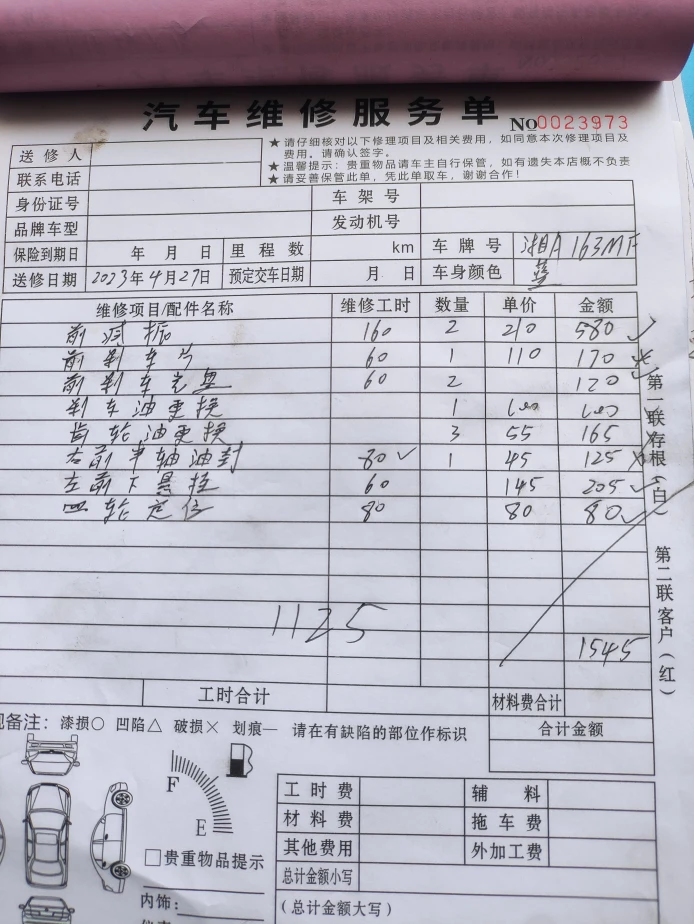 汽车维修服务单 No0023973
★请仔细核对以下修理项目及相关费用，如同意本次修理项目及
费用。请确认签字。
★温馨提示：贵重物品请车主自行保管，如有遗失本店概不负责
★请妥善保管此单，凭此单取车，谢谢合作！
送修人
联系电话
身份证号 车架号
品牌车型 发动机号
保险到期日 年 月 日 里程数 km 车牌号 湘A163MF
送修日期 2023年4月27日 预定交车日期 月 日 车身颜色 蓝
维修项目/配件名称 维修工时 数量 单价 金额
前减振 160 2 210 580 ✓
前刹车片 60 1 110 170
前刹车壳 60 2 120 ✓
刹车油更换 1 100 100
齿轮油更换 3 55 165
右前半轴油封 80 ✓ 1 45 125 ×
左前下悬挂 60 145 205 ✓
四轮定位 80 80 80 ✓
1125
1545
工时合计 材料费合计
合计金额
备注：漆损○ 凹陷△ 破损× 划痕— 请在有缺陷的部位作标识
F
E
□贵重物品提示
内饰：
工时费 辅料
材料费 拖车费
其他费用 外加工费
总计金额小写
（总计金额大写）
第一联存根（白）
第二联客户（红）